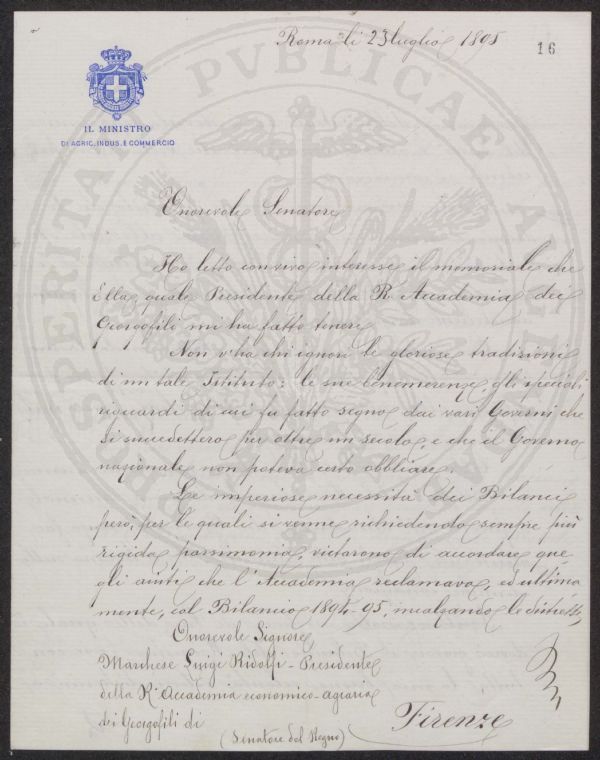 Roma li 23 luglio 1895
16
IL MINISTRO
DI AGRIC. INDUS. E COMMERCIO
Onorevole Senatore
Ho letto con vivo interesse il memoriale che
Ella, quale Presidente della R. Accademia dei
Georgofili mi ha fatto tenere.
Non v'ha chi ignori le gloriose tradizioni
di un tale Istituto: le sue benemerenze, gli speciali
riguardi di cui fu fatto segno dai vari Governi che
si succedettero per oltre un secolo, e che il Governo
nazionale non poteva certo obbliare.
Le imperiose necessità dei Bilanci
però, per le quali si venne richiedendo sempre più
rigida parsimonia, vietarono di accordare que
gli aiuti che l'Accademia reclamava, ed ultima
mente, col Bilancio 1894-95, incalzando le distrette,
Onorevole Signore
Marchese Luigi Ridolfi - Presidente
della R. Accademia economico-agraria
dei Georgofili di
(Senatore del Regno)
Firenze
PROSPERITATI PVBLICAE AVGENDAE